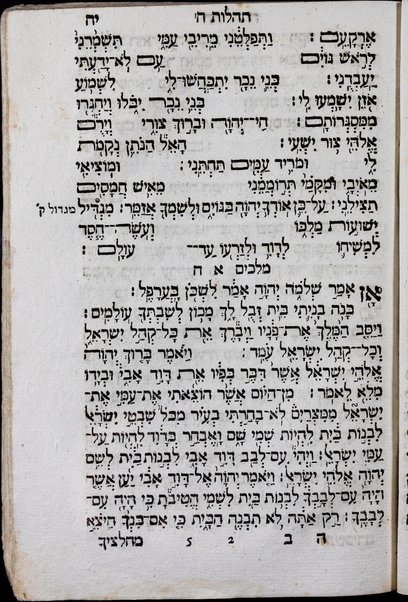 תהלות ה׳ יח
אֶרְקָעֵם׃ וַתְּפַלְּטֵנִי מֵרִיבֵי עַמִּי תִּשְׁמְרֵנִי
לְרֹאשׁ גּוֹיִם עַם לֹא־יָדַעְתִּי
יַעַבְדֻנִי׃ בְּנֵי נֵכָר יִתְכַּחֲשׁוּ־לִי לִשְׁמוֹעַ
אֹזֶן יִשָּׁמְעוּ לִי׃ בְּנֵי נֵכָר יִבֹּלוּ וְיַחְגְּרוּ
מִמִּסְגְּרוֹתָם׃ חַי־יְהוָֹה וּבָרוּךְ צוּרִי וְיָרֻם
אֱלֹהֵי צוּר יִשְׁעִי׃ הָאֵל הַנֹּתֵן נְקָמֹת
לִי וּמֹרִיד עַמִּים תַּחְתֵּנִי׃ וּמוֹצִיאִי
מֵאֹיְבָי וּמִקָּמַי תְּרוֹמְמֵנִי מֵאִישׁ חֲמָסִים
תַּצִּילֵנִי׃ עַל־כֵּן אוֹדְךָ יְהוָֹה בַּגּוֹיִם וּלְשִׁמְךָ אֲזַמֵּר׃ מַגְדִּיל מגדול ק׳
יְשׁוּעוֹת מַלְכּוֹ וְעֹשֶׂה־חֶסֶד
לִמְשִׁיחוֹ לְדָוִד וּלְזַרְעוֹ עַד־ עוֹלָם׃
מלכים א ח
אָז אָמַר שְׁלֹמֹה יְהוָֹה אָמַר לִשְׁכֹּן בָּעֲרָפֶל׃
בָּנֹה בָנִיתִי בֵּית זְבֻל לָךְ מָכוֹן לְשִׁבְתְּךָ עוֹלָמִים׃
וַיַּסֵּב הַמֶּלֶךְ אֶת־פָּנָיו וַיְבָרֶךְ אֵת כָּל־קְהַל יִשְׂרָאֵל
וְכָל־קְהַל יִשְׂרָאֵל עֹמֵד׃ וַיֹּאמֶר בָּרוּךְ יְהוָֹה
אֱלֹהֵי יִשְׂרָאֵל אֲשֶׁר דִּבֶּר בְּפִיו אֵת דָּוִד אָבִי וּבְיָדוֹ
מִלֵּא לֵאמֹר׃ מִן־הַיּוֹם אֲשֶׁר הוֹצֵאתִי אֶת־עַמִּי אֶת־
יִשְׂרָאֵל מִמִּצְרַיִם לֹא־בָחַרְתִּי בְעִיר מִכֹּל שִׁבְטֵי יִשְׂרָאֵל
לִבְנוֹת בַּיִת לִהְיוֹת שְׁמִי שָׁם וָאֶבְחַר בְּדָוִד לִהְיוֹת עַל־
עַמִּי יִשְׂרָאֵל׃ וַיְהִי עִם־לְבַב דָּוִד אָבִי לִבְנוֹת בַּיִת לְשֵׁם
יְהוָֹה אֱלֹהֵי יִשְׂרָאֵל׃ וַיֹּאמֶר יְהוָֹה אֶל־דָּוִד אָבִי יַעַן אֲשֶׁר
הָיָה עִם־לְבָבְךָ לִבְנוֹת בַּיִת לִשְׁמִי הֱטִיבֹתָ כִּי הָיָה עִם־
לְבָבֶךָ׃ רַק אַתָּה לֹא תִבְנֶה הַבָּיִת כִּי אִם־בִּנְךָ הַיֹּצֵא
ה ב 2 5 מחלציך